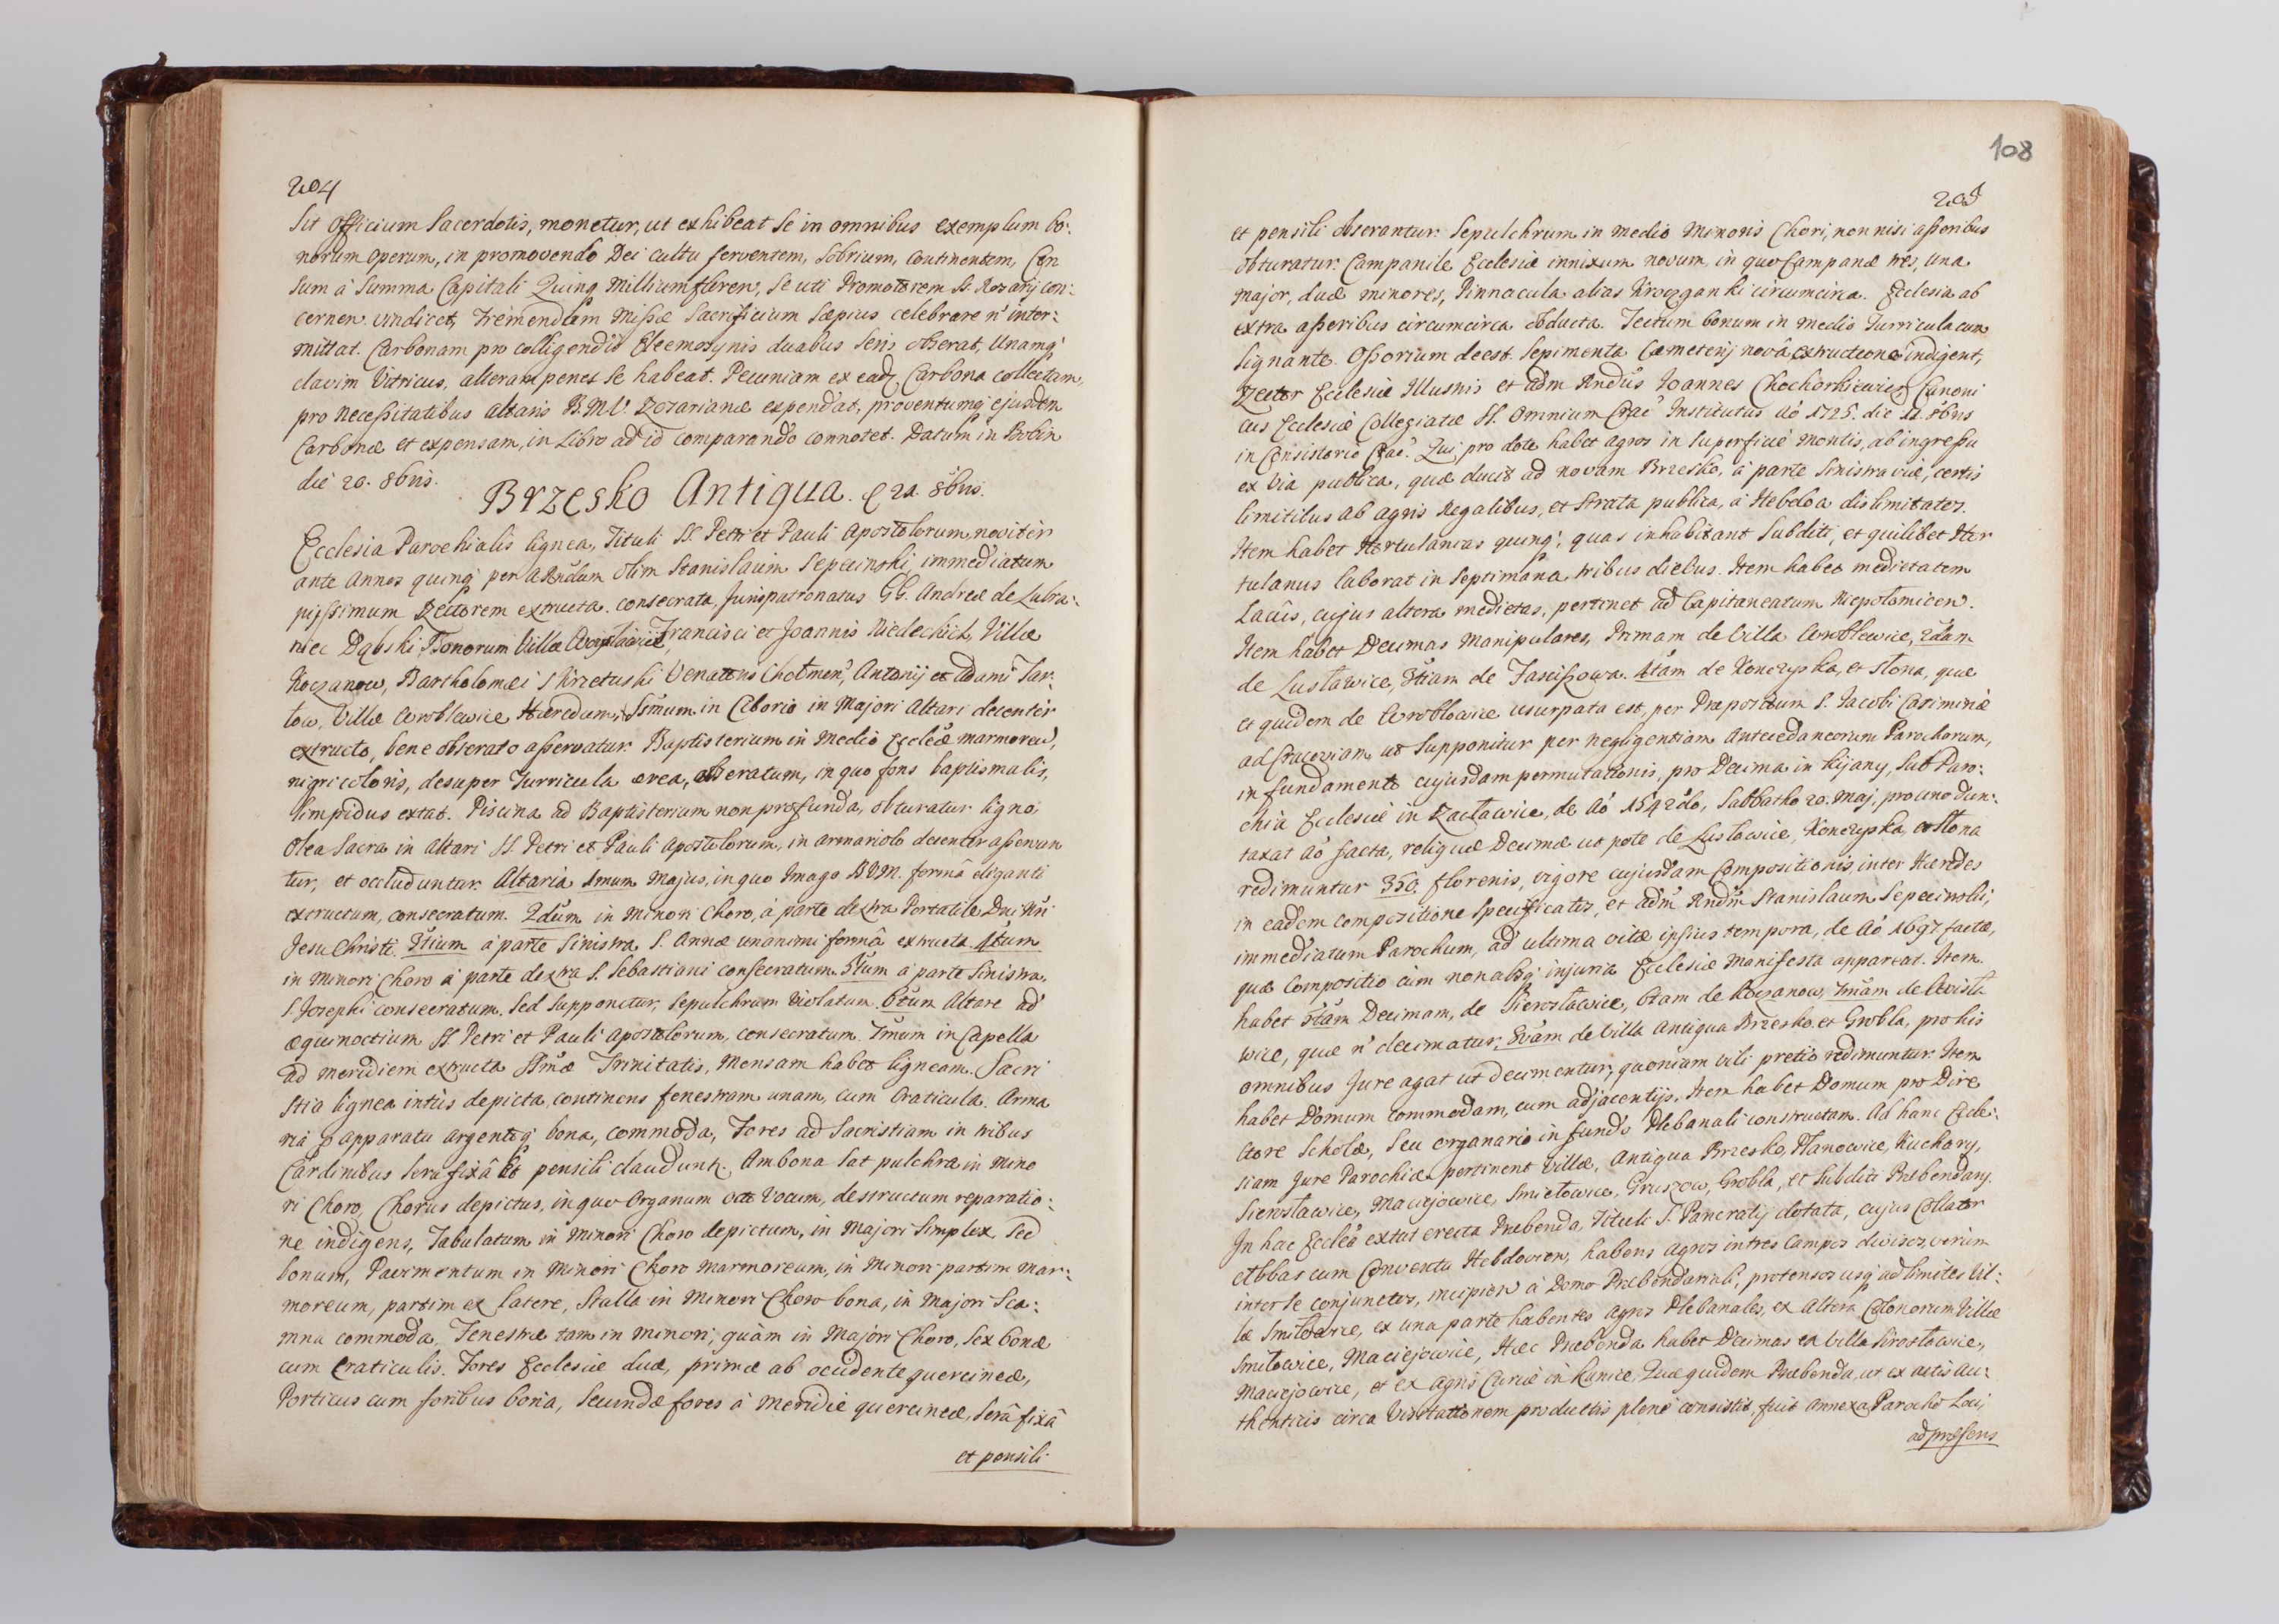 204
Sit Officium Sacerdotis, monetur, ut exhibeat Se in omnibus exemplum bo:
norum operum, in promovendo Dei cultu ferventem, Sobrium, continentem, Cen
Sum à Summa Capitali Quinq Millium floren, Se uti Promotorem SS. Rozarij con:
cernen. vindicet, tremendum Missæ Sacrificium Sæpius celebrare n̄ inter:
mittat. Carbonam pro colligendis Eleemosynis duabus Seris obserat, Unamq́
clavim Vitricus, alteram penes Se habeat. Pecuniam ex eadz Carbona collectam,
pro necessitatibus altaris B.M.V. Rozarianæ expendat, proventumq́ ejusdem
Carbonæ et expensam, in Libro ad id comparando connotet. Datum in Bobin
die 20. 8bris.
Brzesko Antiqua. 21. 8bris.
Ecclesia Parochialis lignea, Tituli SS. Petri et Pauli Apostolorum, noviter
ante annos quinq́ per aRndum olim Stanislaum Sepecinski, immediatum
pijssimum Rectorem extructa. consecrata, Jurispatronatus GG. Andreæ de Lubra:
niec Dąbski, Bonorum Villæ Francisci et Joannis Niedechich, Villæ
Koczanow, Bartholomæi Skrzetuski Venatoris Chelmen, Antonij et adami Jar:
low, Villæ Wroblewice Hæredum, SSimum in Ciborio in Majori Altari decenter
extructo, bene obserato asservatur. Baptisterium in medio Eccleæ marmoreū,
nigri coloris, desuper Turricula ærea, obseratum, in quo fons baptismalis,
limpidus extat. Piscina ad Baptisterium non profunda, obturatur ligno,
Olea Sacra in altari SS. Petri et Pauli Apostolorum, in armariolo decenter asservan
tur, et occluduntur. Altaria 1mum Majus, in quo Imago B.V.M. formâ eleganti
extructum, consecratum. 2dum in minori Choro, à parte dextra Portatile Dni Nri
Jesu Christi. 3tium à parte Sinistra S. Annæ unanimi formâ extructa. 4tum
in minori Choro à parte dextra S. Sebastiani consecratum. 5tum à parte Sinistra,
S. Josephi consecratum. Sed Supponitur, Sepulchrum Violatum. 6tum Altare ad
æquinoctium SS. Petri et Pauli Apostolorum, consecratum. 7mum in Capella
ad meridiem extructa SSmæ Trinitatis, Mensam habet ligneam. Sacri
stia lignea intus depicta, continens fenestram unam, cum Craticula. Arma
ria p apparatu argenteoq́ bona, commoda, Fores ad Sacristiam in tribus
Cardinibus Sera fixâ et pensili claudunt. Ambona Sat pulchra in Mino
ri Choro, Chorus depictus, in quo Organum octo Vocum, destructum reparatio:
ne indigens, Tabulatum in minori Choro depictum, in majori Simplex, Sed
bonum, Pavimentum in minori Choro marmoreum, in Minori partim mar:
moreum, partim ex latere, Stalla in Minori Choro bona, in majori Sca:
mna commoda. Fenestræ tam in minori, quàm in Majori Choro, Sex bonæ
cum Craticulis. Fores Ecclesiæ duæ, primæ ab occidente quercineæ,
Porticus cum foribus bona, Secundæ fores à meridie quercineæ, Serâ fixâ
et pensili
108
205
et pensili obserantur. Sepulchrum in medio Minoris Chori, non nisi asseribus
obturatur. Campanile Ecclesiæ innixum novum, in quo Campanæ tres, una
major, duæ minores, Pinnacula alias Kroczganki circumcirca. Ecclesia ab
extra asseribus circumcirca obducta. Tectum bonum in medio Turricula cum
Signante. Ossorium deest. Sepimenta Cœmeterij novâ extructione indigent,
Rector Ecclesiæ Illusris et adm Rndūs Joannes Chochorkiewicz Canoni
cus Ecclesiæ Collegiatæ SS. Omnium Crac̄ Institutus Aō 1725. die 11. 8bris
in Consistorio Crac̄. Qui pro dote habet agros in Superficie Montis, ab ingressu
ex Via publica, quæ ducit ad novam Brzesko, à parte Sinistra viæ, certis
limitibus ab agris Regalibus, et Strata publica, à Hebdoa dislimitatos.
Item habet Hortulanias quinq́, quas inhabitant Subditi, et quilibet Hor
tulanus laborat in Septimana tribus diebus. Item habet medietatem
Lacûs, cujus altera medietas, pertinet ad Capitaneatum Niepolomicen.
Item habet Decimas manipulares, Primam de Villa Wroblewice, 2dam
de Lustawice, 3tiam de Jasciszowa. 4tam de Konczyska, et Stona, quæ
et quidem de Wroblowice usurpata est, per Præpositum S. Jacobi Casimiriæ
ad Cracoviam, ut Supponitur per negligentiam Antecedaneorum Parochorum,
in fundamento cujusdam permutationis, pro Decima in Kijany, Sub Paro:
chia Ecclesiæ in Zactawice, de Aō 1542do, Sabbatho 20. Maj, pro uno dun:
taxat aō facta, reliquæ Decimæ ut pote de Lustowice, Konczyska, et Stona
redimuntur 350. florenis, vigore cujusdam Compositionis, inter Hæredes
in eadem compositione Specificatos, et adm Rndm Stanislaum Sepecinski,
immediatum Parochum, ad ultima vitæ ipsius tempora, de Aō 1697 factæ,
quæ Compositio cùm non absq́ injuria Ecclesiæ manifesta appareat. Item
habet 5tam Decimam, de Sierosławice, 6tam de Koczanow, 7mam de Wista
wice, quæ n̄ decimatur. 8vam de Villa Antiqua Brzesko, et Grobla, pro his
omnibus Jure agat ut decimentur, quoniam vili pretio redimuntur. Item
habet Domum commodam, cum adjacentijs. Item habet Domum pro Dire
ctore Scholæ, Seu organario in fundo Plebanali constructam. Ad hanc Eccle:
siam Jure Parochiæ pertinent Villæ, Antiqua Brzesko, Planowice, Kuchary,
Sierosławice, Maciejowice, Smiełowice, Gruszow, Grobla, et Subditi Præbendarij.
In hac Ecclēa extat erecta Præbenda, Tituli S. Pancratij dotata, cujus Collator
Abbas cum Conventu Hebdovien, habens agros in tres Campos divisos, verùm
inter Se conjunctos, incipien à Domo Præbendariali, protensos usq́ ad limites Vil:
læ Smiłowice, ex una parte habentes agros Plebanales, ex altera Colonorum Villæ
Smiłowice, Maciejowice, Hæc Præbenda habet Decimas ex Villa Sirosławice,
Maciejowice, et ex agris Curiæ in Hunice, Quæ quidem Præbenda, ut ex actis au:
thenticis circa Visitationem productis plenè consistit, fuit annexa Parocho Loci,
ad præsens